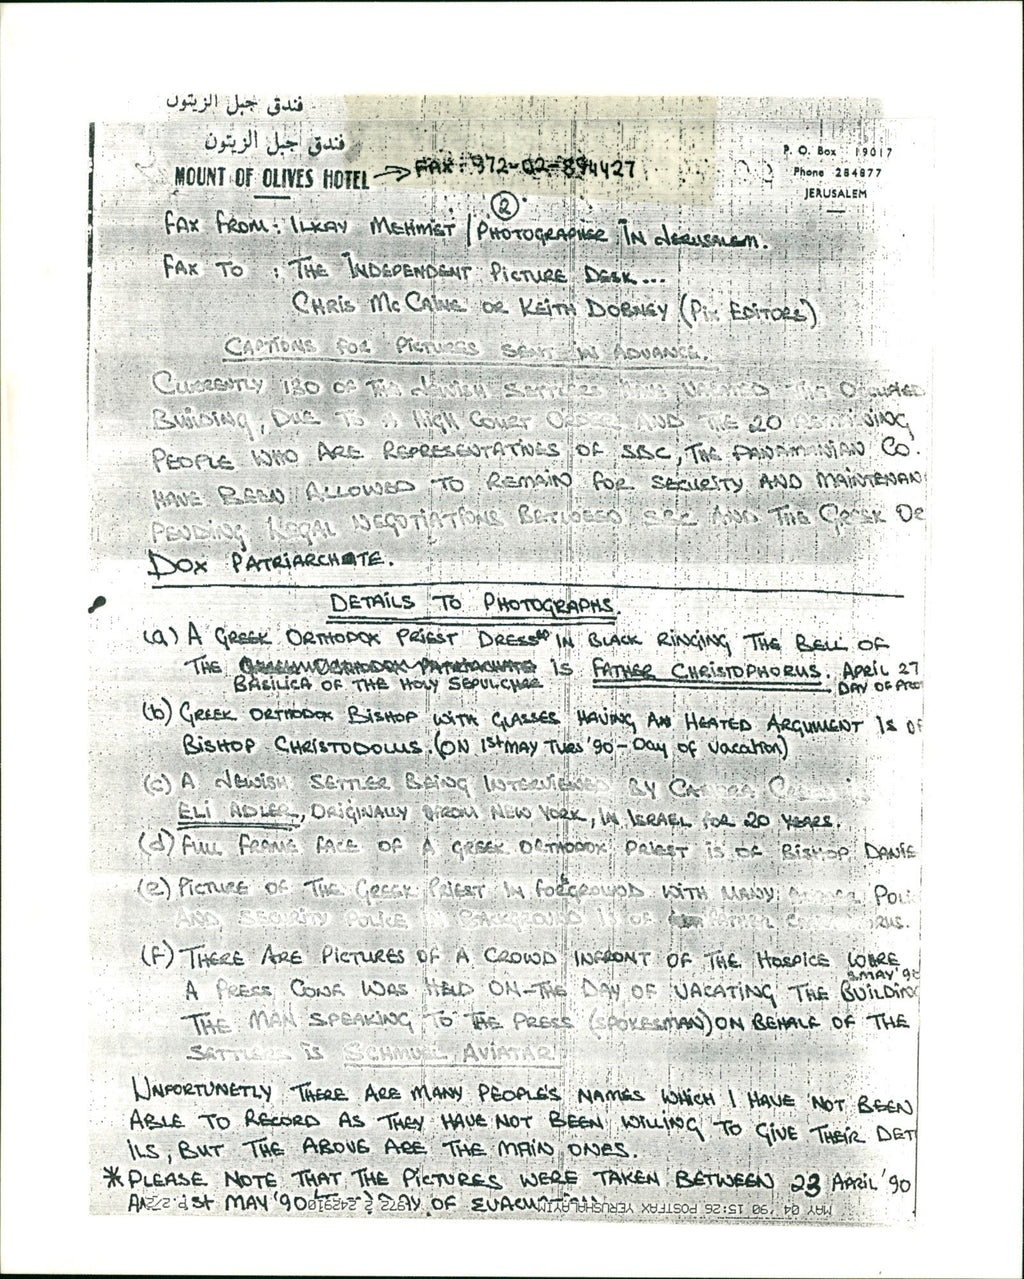 فندق جبل الزيتون
فندق جبل الزيتون
MOUNT OF OLIVES HOTEL → FAX: 972-02-894427
P. O. Box 19017
Phone 284877
JERUSALEM
2
FAX FROM: ILKAY MEHMET / PHOTOGRAPHER IN JERUSALEM.
FAX TO : THE INDEPENDENT PICTURE DESK...
CHRIS McCANE OR KEITH DOBNEY (PIX EDITORS)
CAPTIONS FOR PICTURES SENT IN ADVANCE.
CURRENTLY 130 OF THE JEWISH SETTLERS HAVE VACATED THE OCCUPIED
BUILDING, DUE TO A HIGH COURT ORDER AND THE 20 REMAINING
PEOPLE WHO ARE REPRESENTATIVES OF SBC, THE PANAMANIAN CO.
HAVE BEEN ALLOWED TO REMAIN FOR SECURITY AND MAINTENAN
PENDING LEGAL NEGOTIATIONS BETWEEN SBC AND THE GREEK OR
DOX PATRIARCHATE.
DETAILS TO PHOTOGRAPHS.
(a) A GREEK ORTHODOX PRIEST DRESSED IN BLACK RINGING THE BELL OF
THE IS FATHER CHRISTOPHORUS. APRIL 27
BASILICA OF THE HOLY SEPULCHRE DAY OF PRO
(b) GREEK ORTHODOX BISHOP WITH GLASSES HAVING AN HEATED ARGUMENT IS OF
BISHOP CHRISTODOLUS. (ON 1st MAY TUES '90 - DAY OF VACATION)
(c) A JEWISH SETTLER BEING INTERVIEWED BY
ELI ADLER, ORIGINALLY FROM NEW YORK, IN ISRAEL FOR 20 YEARS.
(d) FULL FRAME FACE OF A GREEK ORTHODOX PRIEST IS OF BISHOP DANIE
(e) PICTURE OF THE GREEK PRIEST IN FOREGROUND WITH MANY POLI
AND SECURITY POLICE IN BACKGROUND IS OF FATHER
(f) THERE ARE PICTURES OF A CROWD INFRONT OF THE HOSPICE WERE
A PRESS CONF WAS HELD ON-THE DAY OF VACATING THE BUILDING
MAY '90
THE MAN SPEAKING TO THE PRESS (SPOKESMAN) ON BEHALF OF THE
SETTLERS IS SCHMUEL AVIATAR
UNFORTUNETLY THERE ARE MANY PEOPLE'S NAMES WHICH I HAVE NOT BEEN
ABLE TO RECORD AS THEY HAVE NOT BEEN WILLING TO GIVE THEIR DET
ILS, BUT THE ABOVE ARE THE MAIN ONES.
* PLEASE NOTE THAT THE PICTURES WERE TAKEN BETWEEN 23 APRIL '90
AN 1st MAY '90 DAY OF EVACUATION
MAY 04 '90 15:26 POSTFAX YERUSHALAYIM 972 2 242910 P.2/2